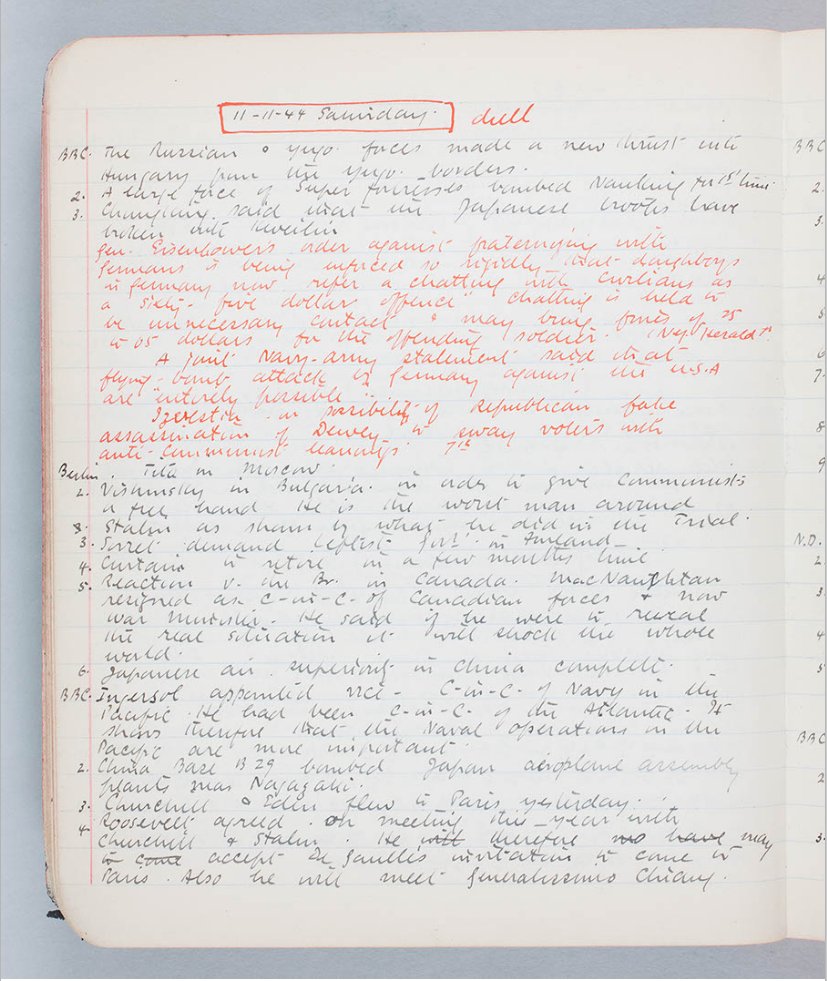 11-11-44 Saturday. dull
BBC. The Russian & yugo. forces made a new thrust into
Hungary from the yugo. borders.
2. A large force of Super fortresses bombed Nanking for 1st time.
3. Chungking said that the Japanese troops have
broken into Kweilin
Gen. Eisenhower's order against fraternizing with
Germans is being enforced so rigidly that doughboys
in Germany now refer a chatting with civilians as
a "sixty-five dollar offence" chatting is held to
be unnecessary contact & may bring fines of 25
to 65 dollars for the offending soldier. (N.Y. Herald T.
A joint Navy-army statement said that
flying-bomb attack by Germany against the U.S.A
are "entirely possible"
Izvestia on possibility of Republican fake
assassination of Dewey to sway voters with
anti-communist leanings 7th
Berlin. Tito in Moscow.
2. Vishinsky in Bulgaria. in order to give communists
a free hand He is the worst man around
Stalin as shown by what he did in the Trial.
3. Soviet demand leftist Govt. in Finland
4. Curtain to retire in a few months time.
5. Reaction v. the Br. in Canada. MacNaughtan
resigned as C-in-C. of Canadian forces & now
war minister. He said if he were to reveal
the real situation it will shock the whole
world.
6. Japanese air superiority in China complete.
BBC. Ingersol appointed vice- C-in-C. of Navy in the
Pacific. He had been C-in-C. of the Atlantic. It
shows therefore that the Naval operations in the
Pacific are more important.
2. China Base B 29 bombed Japan aeroplane assembly
plants near Nagazaki.
3. Churchill & Eden flew to Paris yesterday.
4. Roosevelt agreed on meeting this year with
Churchill & Stalin. He will therefore no have may
to come accept De Gaulle's invitation to come to
Paris. Also he will meet Generalissimo Chiang.
BBC
2.
3.
4
5
6
7.
8
9
N.D.
2.
3.
4
5
BBC
2
3.